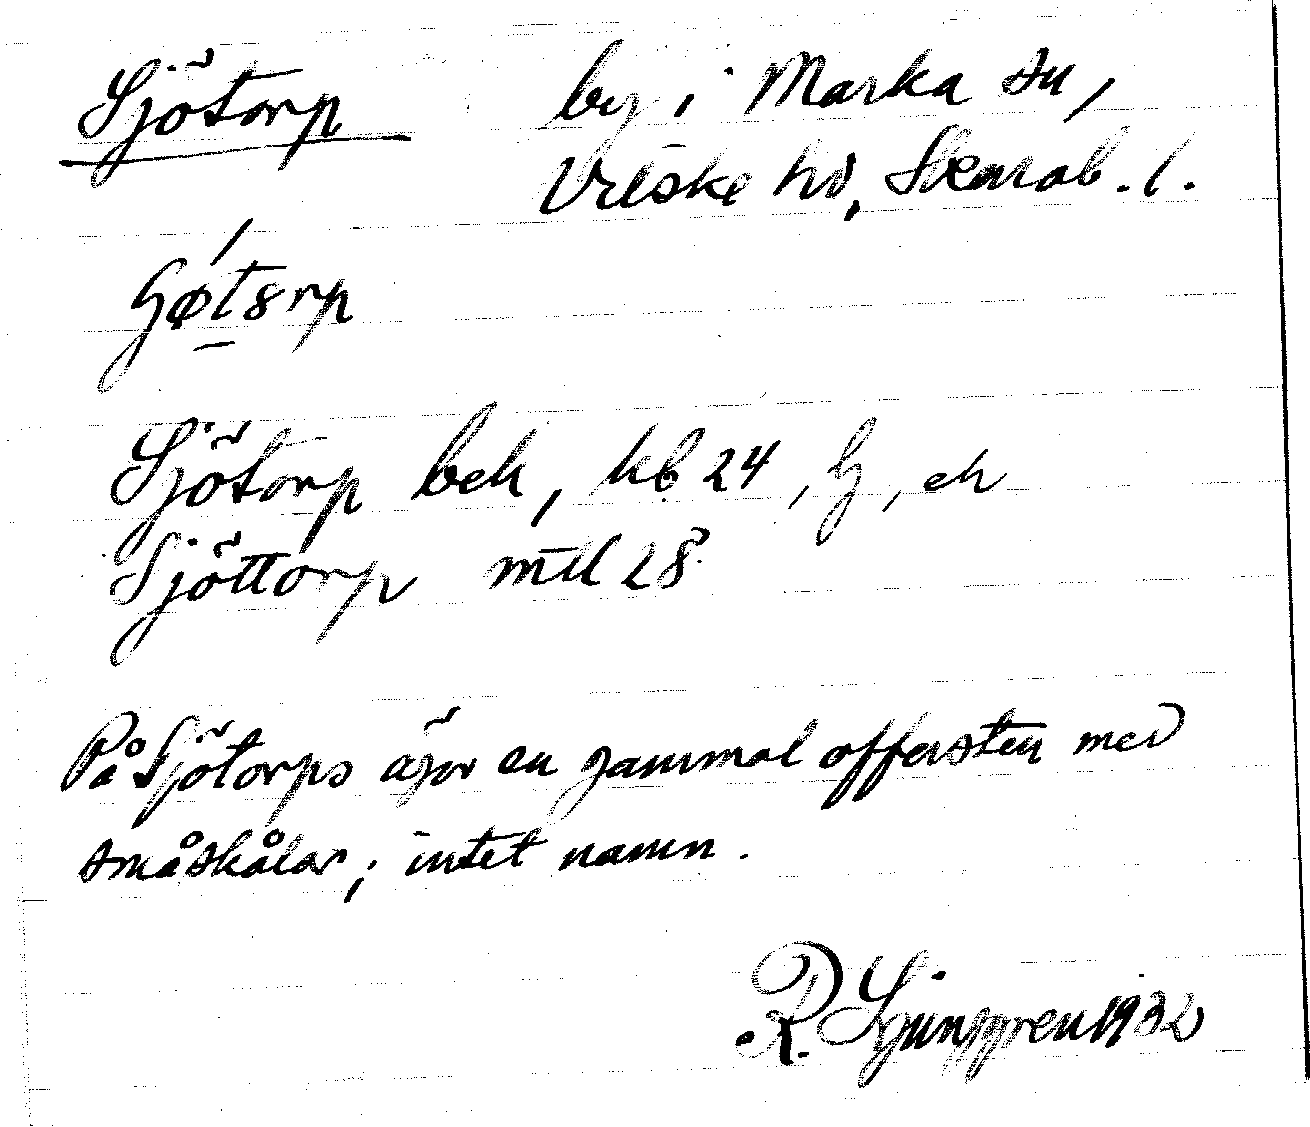 Sjötorp by i Marka sn,
Vilske hd, Skarab. l.
Sjötorp bek, kb 24, G, ek
Sjöttorp mtl 28
På Sjötorps ägor en gammal offersten med
småskålar; intet namn.
R. Ljunggren 1932